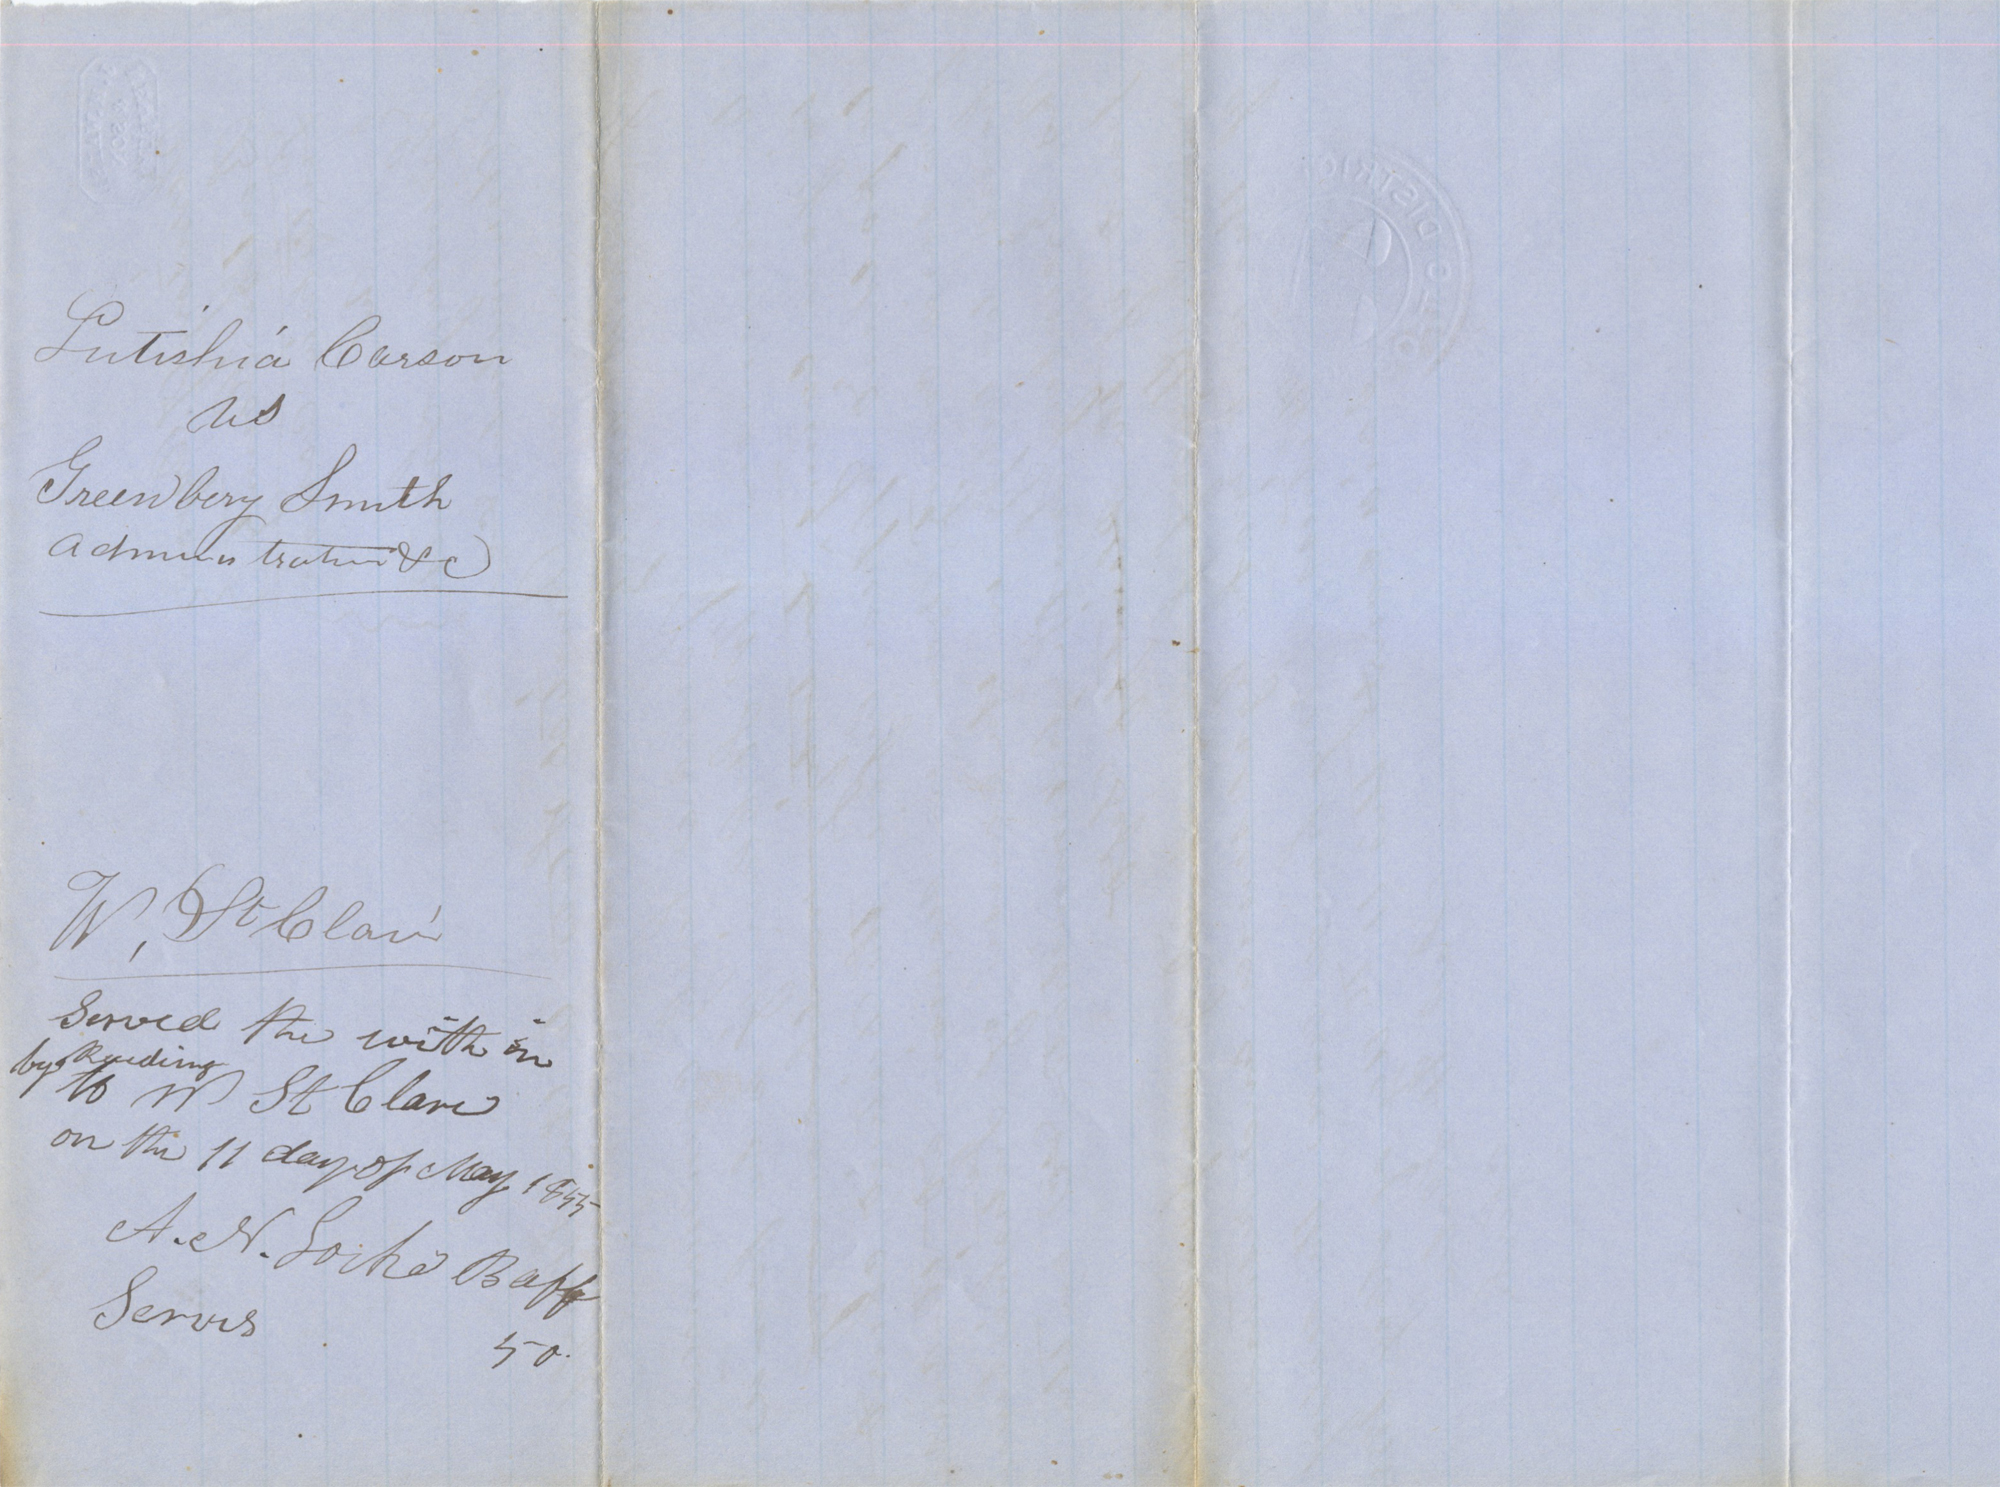 Lutishia Carson
vs
Greenbery Smith
Administrator &c
W, St Clair
Served the with in
by Reading
to W St Clare
on the 11 day of May 1855
A. N. Locke
Serves 50.